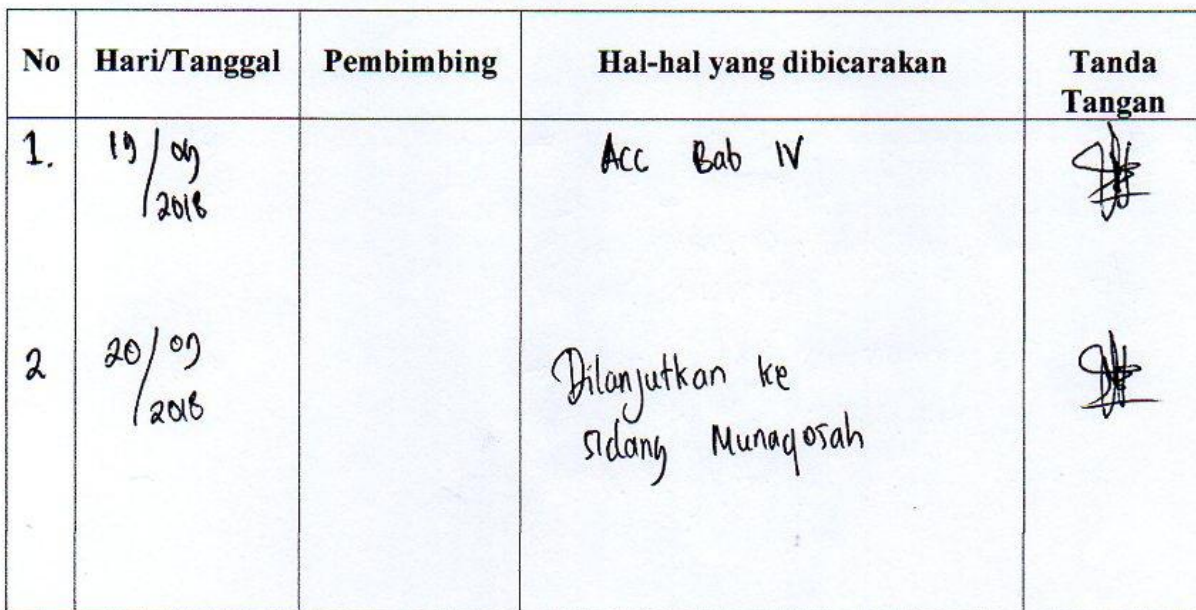 No Hari/Tanggal Pembimbing Hal-hal yang dibicarakan Tanda
Tangan
1. 19/09 Acc Bab IV
2018
2 20/09 Dilanjutkan ke
2018 sidang Munaqosah